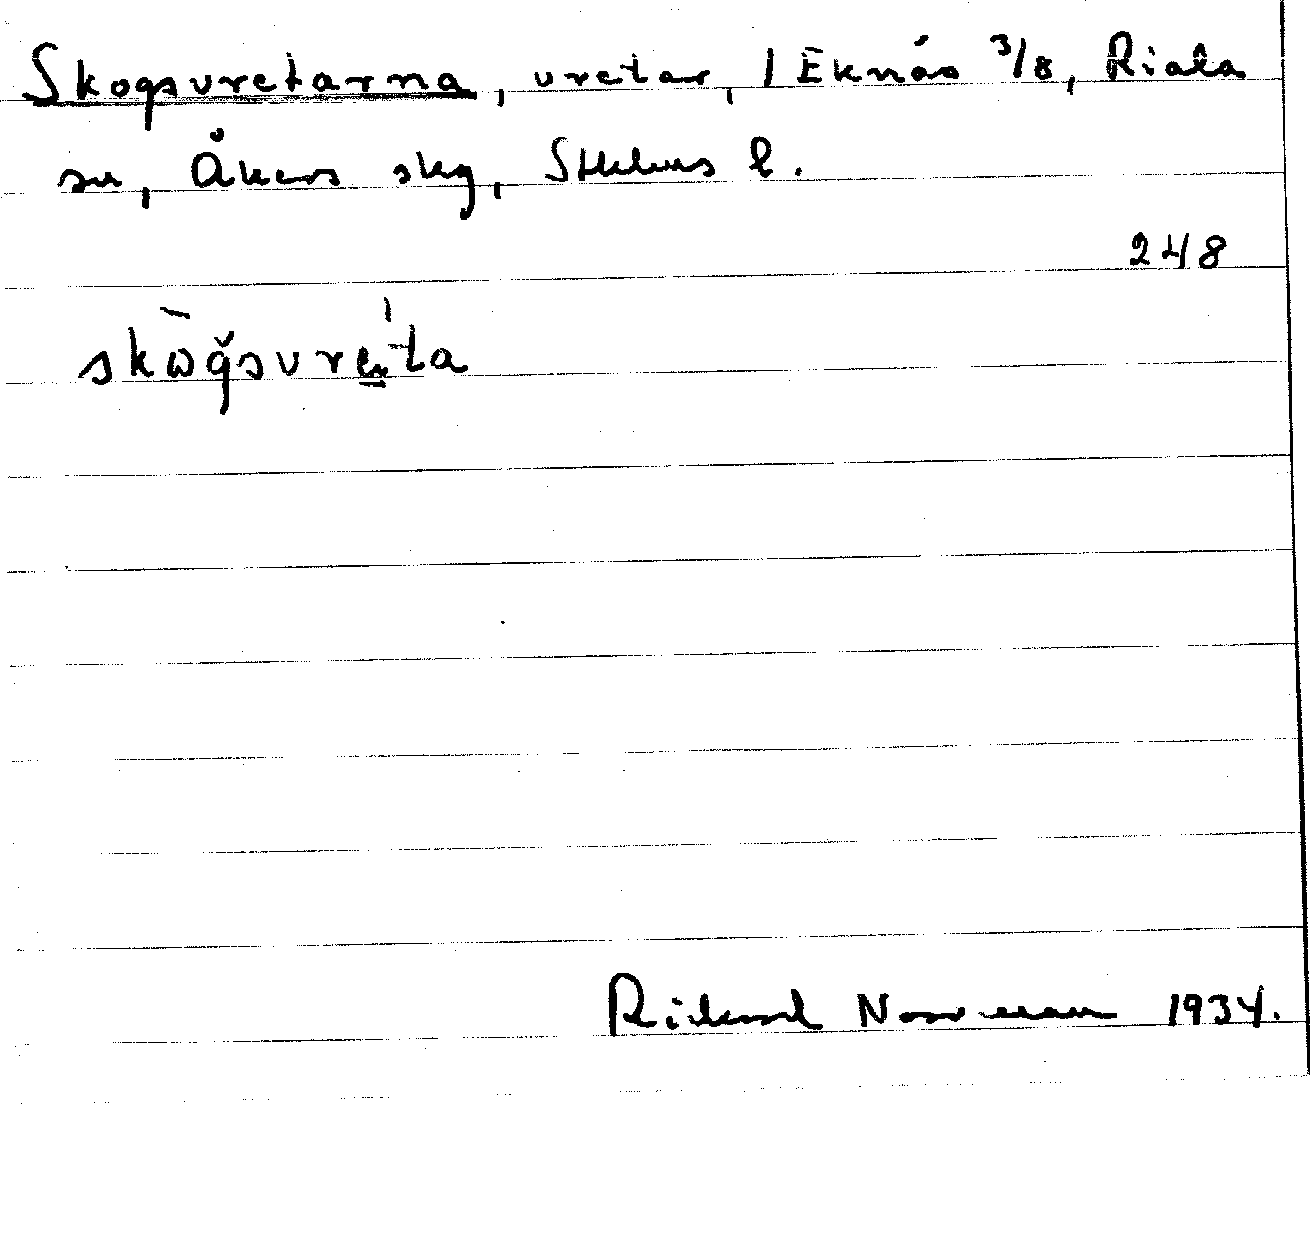 Skogsvretarna, vretar, / Eknäs 3/8, Riala
sn, Åkers skg, Sthlms l.
248
skògsvre̱ta
Rickard Norrman 1934.